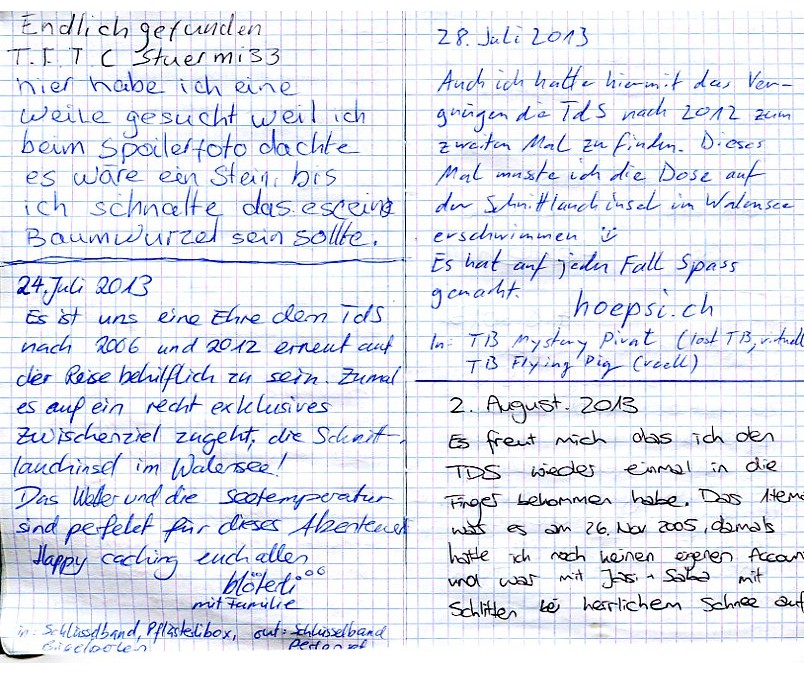 Endlich gefunden
T.F.T.C Stuermi33
hier habe ich eine
Weile gesucht weil ich
beim Spoilerfoto dachte
es wäre ein Stein, bis
ich schnallte das es eine
Baumwurzel sein sollte.
24. Juli 2013
Es ist uns eine Ehre dem TdS
nach 2006 und 2012 erneut auf
der Reise behilflich zu sein. Zumal
es auf ein recht exklusives
Zwischenziel zugeht, die Schnitt-
lauchinsel im Walensee!
Das Wetter und die Seetemperatur
sind perfekt für dieses Abenteuer
Happy caching euch allen
blöterli
mit Familie
in: Schlüsselband, Pflästerlibox, out: Schlüsselband
28. Juli 2013
Auch ich hatte hiermit das Ver-
gnügen die TdS nach 2012 zum
zweiten Mal zu finden. Dieses
Mal musste ich die Dose auf
der Schnittlauchinsel im Walensee
erschwimmen
Es hat auf jeden Fall Spass
gemacht.
hoepsi.ch
In: TB Mystery Pirat (lost TB, virtuell
TB Flying Pig (reell)
2. August. 2013
Es freut mich dass ich den
TDS wieder einmal in die
Finger bekommen habe. Das 1te mal
war es am 26. Nov 2005, damals
hatte ich noch keinen eigenen Accoun
und war mit Jasi + Saba mit
Schlitten bei herrlichem Schnee auf